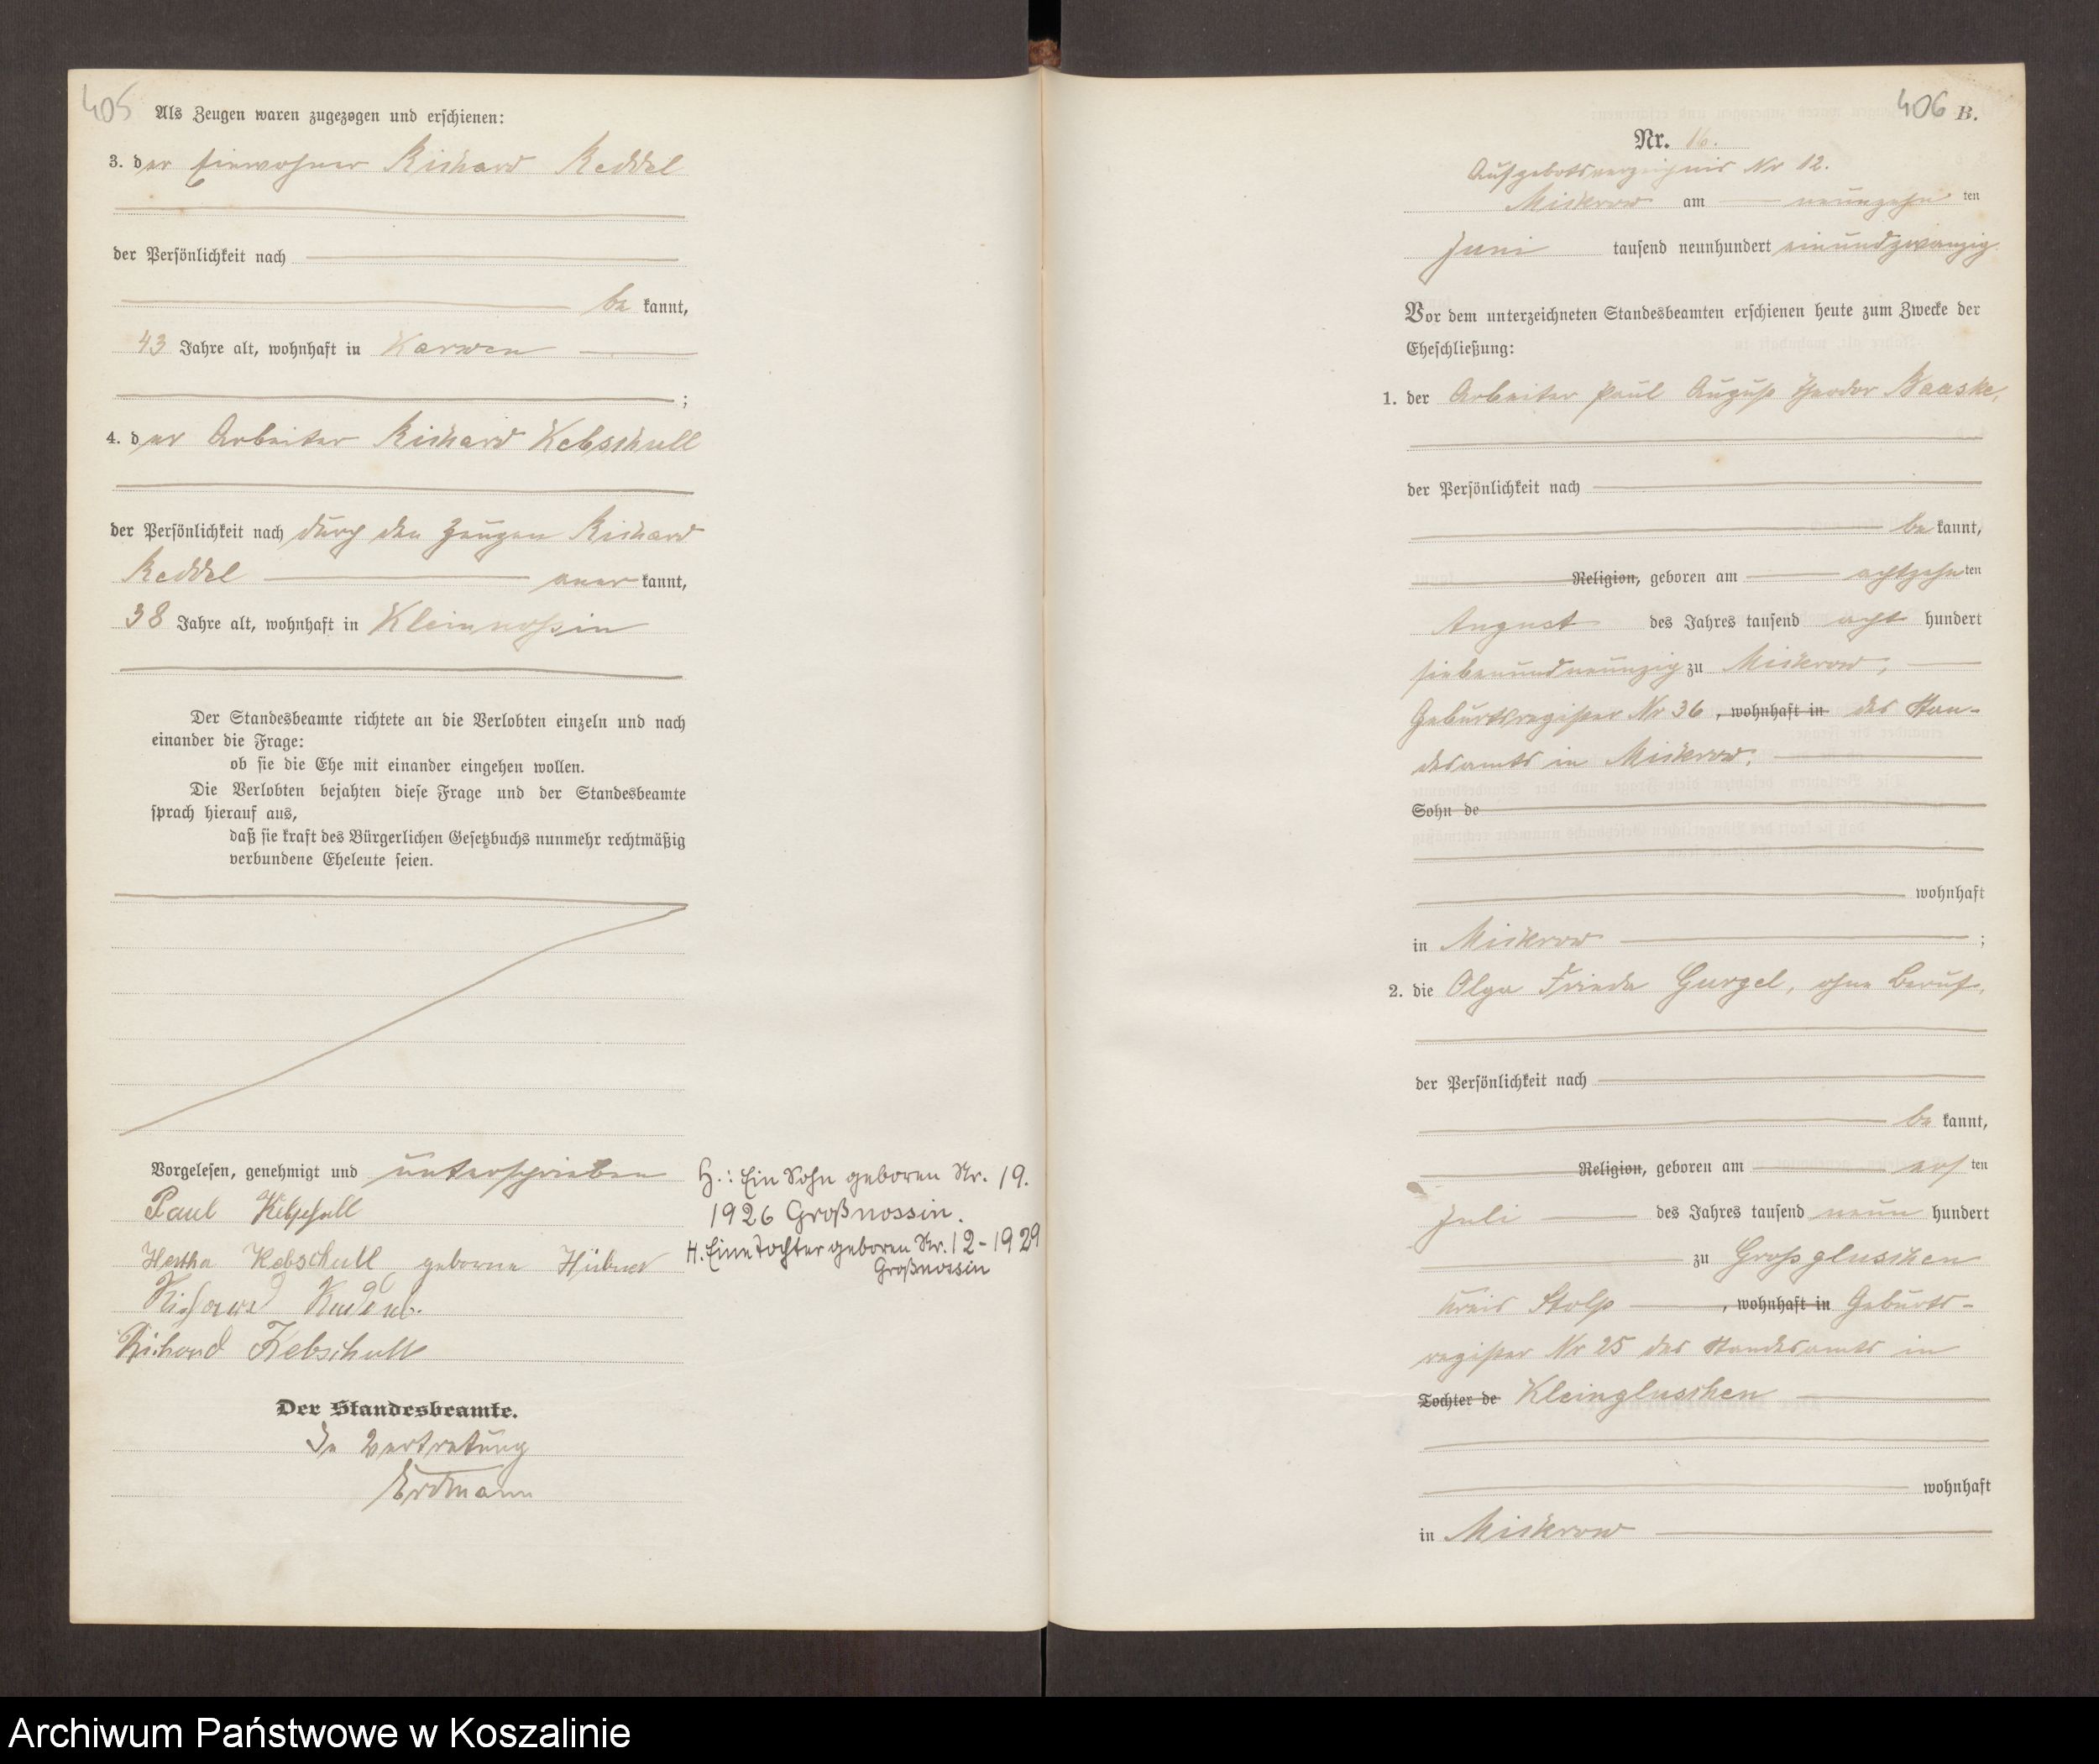 405
Als Zeugen waren zugezogen und erschienen:
3. der Einwohner Richard Reddel
der Persönlichkeit nach
bekannt,
43 Jahre alt, wohnhaft in Karwen
;
4. der Arbeiter Richard Kebschull
der Persönlichkeit nach durch den Zeugen Richard
Reddel anerkannt,
38 Jahre alt, wohnhaft in Kleinnossin
Der Standesbeamte richtete an die Verlobten einzeln und nach
einander die Frage:
ob sie die Ehe mit einander eingehen wollen.
Die Verlobten bejahten diese Frage und der Standesbeamte
sprach hierauf aus,
daß sie kraft des Bürgerlichen Gesetzbuchs nunmehr rechtmäßig
verbundene Eheleute seien.
Vorgelesen, genehmigt und unterschrieben
Paul Kebschull
Hertha Kebschull geborne Hübner
Richard
Richard Kebschull
H.: Ein Sohn geboren Nr. 19.
1926 Großnossin.
H. Eine Tochter geboren Nr. 12-1929
Großnossin
Der Standesbeamte.
In Vertretung
Erdmann
406 B.
Nr. 16.
Aufgebotsverzeichnis Nr 12.
Mickrow am neunzehnten
Juni tausend neunhundert einundzwanzig
Vor dem unterzeichneten Standesbeamten erschienen heute zum Zwecke der
Eheschließung:
1. der Arbeiter Paul August Theodor Raaske,
der Persönlichkeit nach
bekannt,
Religion, geboren am achtzehnten
August des Jahres tausend acht hundert
siebenundneunzig zu Mickrow,
Geburtsregister Nr 36, wohnhaft in des Stan-
desamts in Mickrow,
Sohn de
wohnhaft
in Mickrow ;
2. die Olga Frieda Gurgel, ohne Beruf,
der Persönlichkeit nach
bekannt,
Religion, geboren am ersten
Juli des Jahres tausend neun hundert
zu Großgluschen
Kreis Stolp, wohnhaft in Geburts-
register Nr 25 des Standesamts in
Tochter de Kleingluschen
wohnhaft
in Mickrow
Archiwum Państwowe w Koszalinie